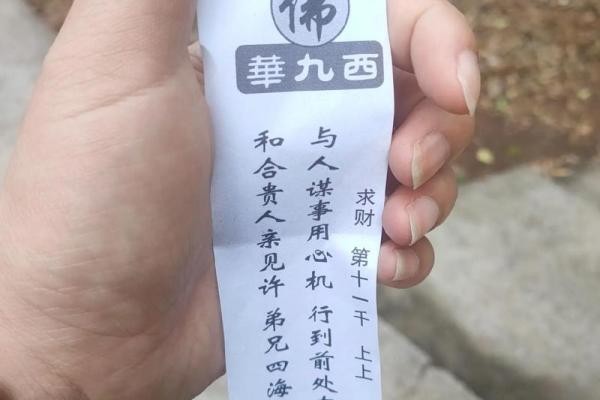 佛
西九華
求财 第十一干 上上
与人谋事用心机 行到前处
和合贵人亲见许 弟兄四海